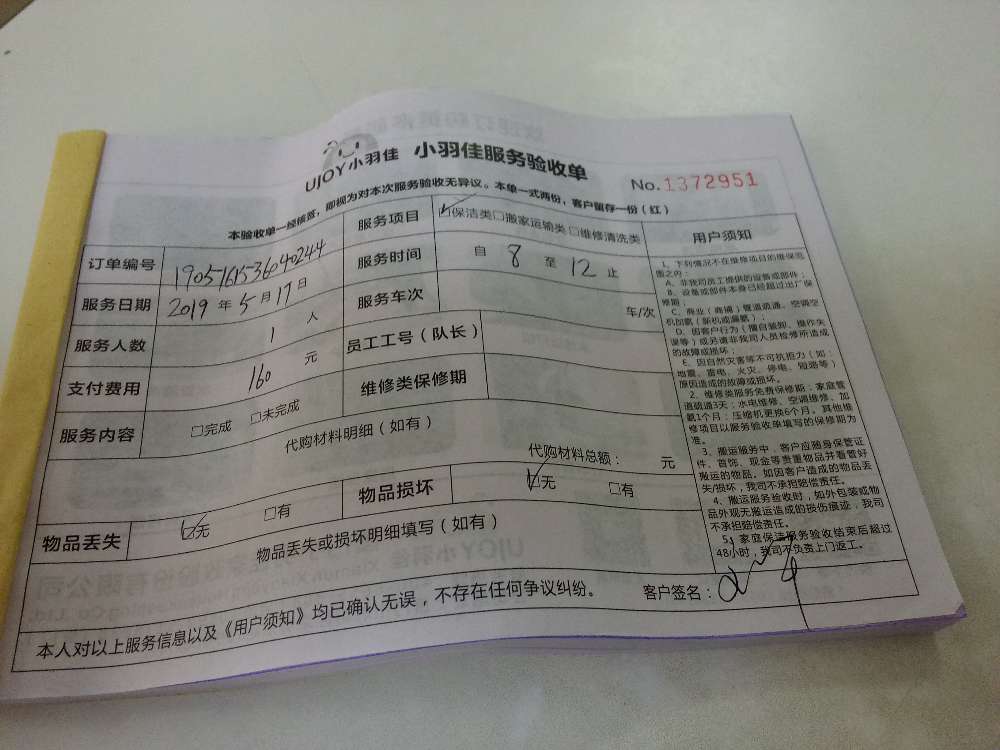 UJOY小羽佳 小羽佳服务验收单
No.1372951
本验收单一经核签，即视为对本次服务验收无异议。本单一式两份，客户留存一份（红）
订单编号 190516153604024４ 服务项目 ☑保洁类□搬家运输类□维修清洗类
服务日期 2019年5月17日 服务时间 自8至12止
服务人数 1人 服务车次 车/次
支付费用 160元 员工工号（队长）
服务内容 □完成 □未完成 维修类保修期
代购材料明细（如有）
代购材料总额： 元
物品丢失 ☑无 □有 物品损坏 ☑无 □有
物品丢失或损坏明细填写（如有）
本人对以上服务信息以及《用户须知》均已确认无误，不存在任何争议纠纷。 客户签名：
用户须知
1、下列情况不在维修项目的维保范
围之内：
A、非我司员工提供的设备或部件；
B、设备或部件本身已经超过出厂保
修期；
C、商业（商铺）管道疏通、空调空
机加氟（新机或漏氟）；
D、因客户行为（擅自装卸、操作失
误等）或另请非我司人员检修所造成
的故障或损坏；
E、因自然灾害等不可抗拒力（如：
地震、雷电、火灾、停电、短路等）
原因造成的故障或损坏。
2、维修类服务免费保修期：家庭管
道疏通3天；水电维修、空调维修、加
氟1个月；压缩机更换6个月。其他维
修项目以服务验收单填写的保修期为
准。
3、搬运服务中，客户应随身保管证
件、首饰、现金等贵重物品并看管好
搬运的物品。如因客户造成的物品丢
失/损坏，我司不承担赔偿责任。
4、搬运服务验收时，如外包装或物
品外观无搬运造成的损伤痕迹，我司
不承担赔偿责任。
5、家庭保洁服务验收结束后超过
48小时，我司不负责上门返工。